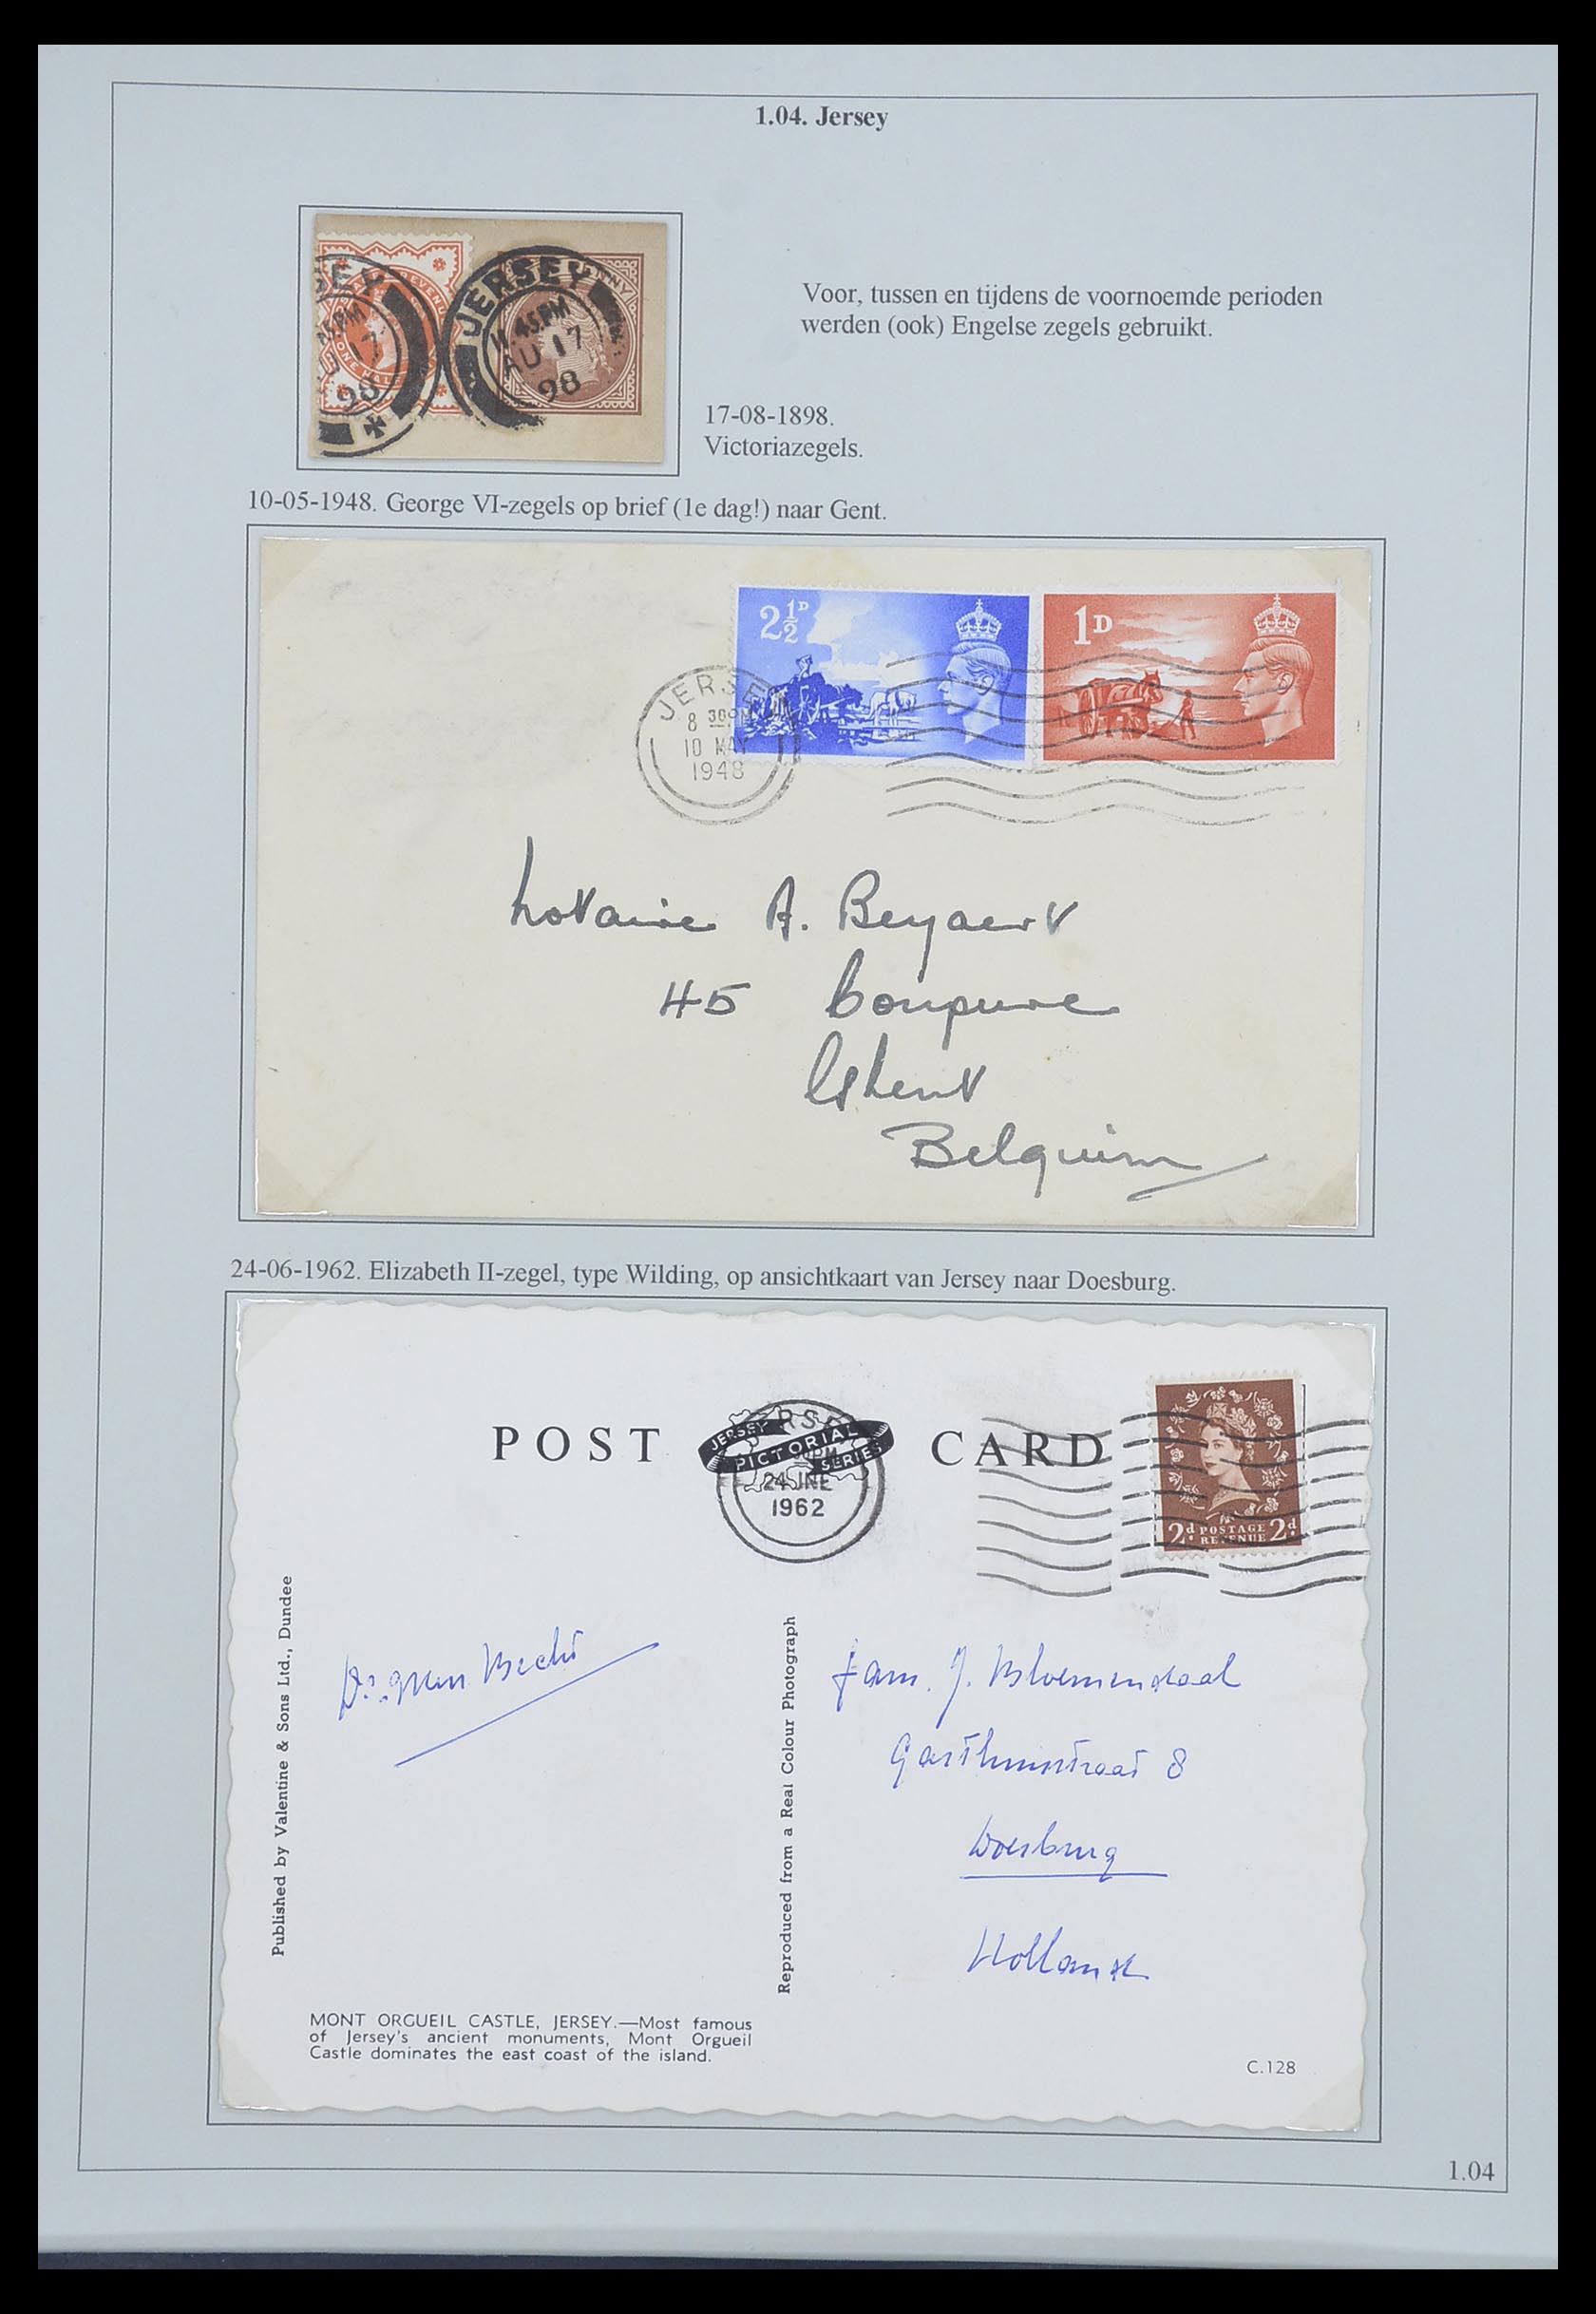 1.04. Jersey
JERSEY
11.45PM
AU 17
98
Voor, tussen en tijdens de voornoemde perioden
werden (ook) Engelse zegels gebruikt.
17-08-1898.
Victoriazegels.
10-05-1948. George VI-zegels op brief (1e dag!) naar Gent.
2½D
1D
JERSEY
8 30PM
10 MAY
1948
Notaire A. Beyaert
45 Coupure
Ghent
Belguim
24-06-1962. Elizabeth II-zegel, type Wilding, op ansichtkaart van Jersey naar Doesburg.
POST CARD
JERSEY
PICTORIAL
SERIES
24 JNE
1962
2d POSTAGE REVENUE 2d
Published by Valentine & Sons Ltd., Dundee
Reproduced from a Real Colour Photograph
fam. J. Bloemendaal
Gasthuisstraat 8
Doesburg
Holland
MONT ORGUEIL CASTLE, JERSEY.—Most famous
of Jersey's ancient monuments, Mont Orgueil
Castle dominates the east coast of the island.
C.128
1.04